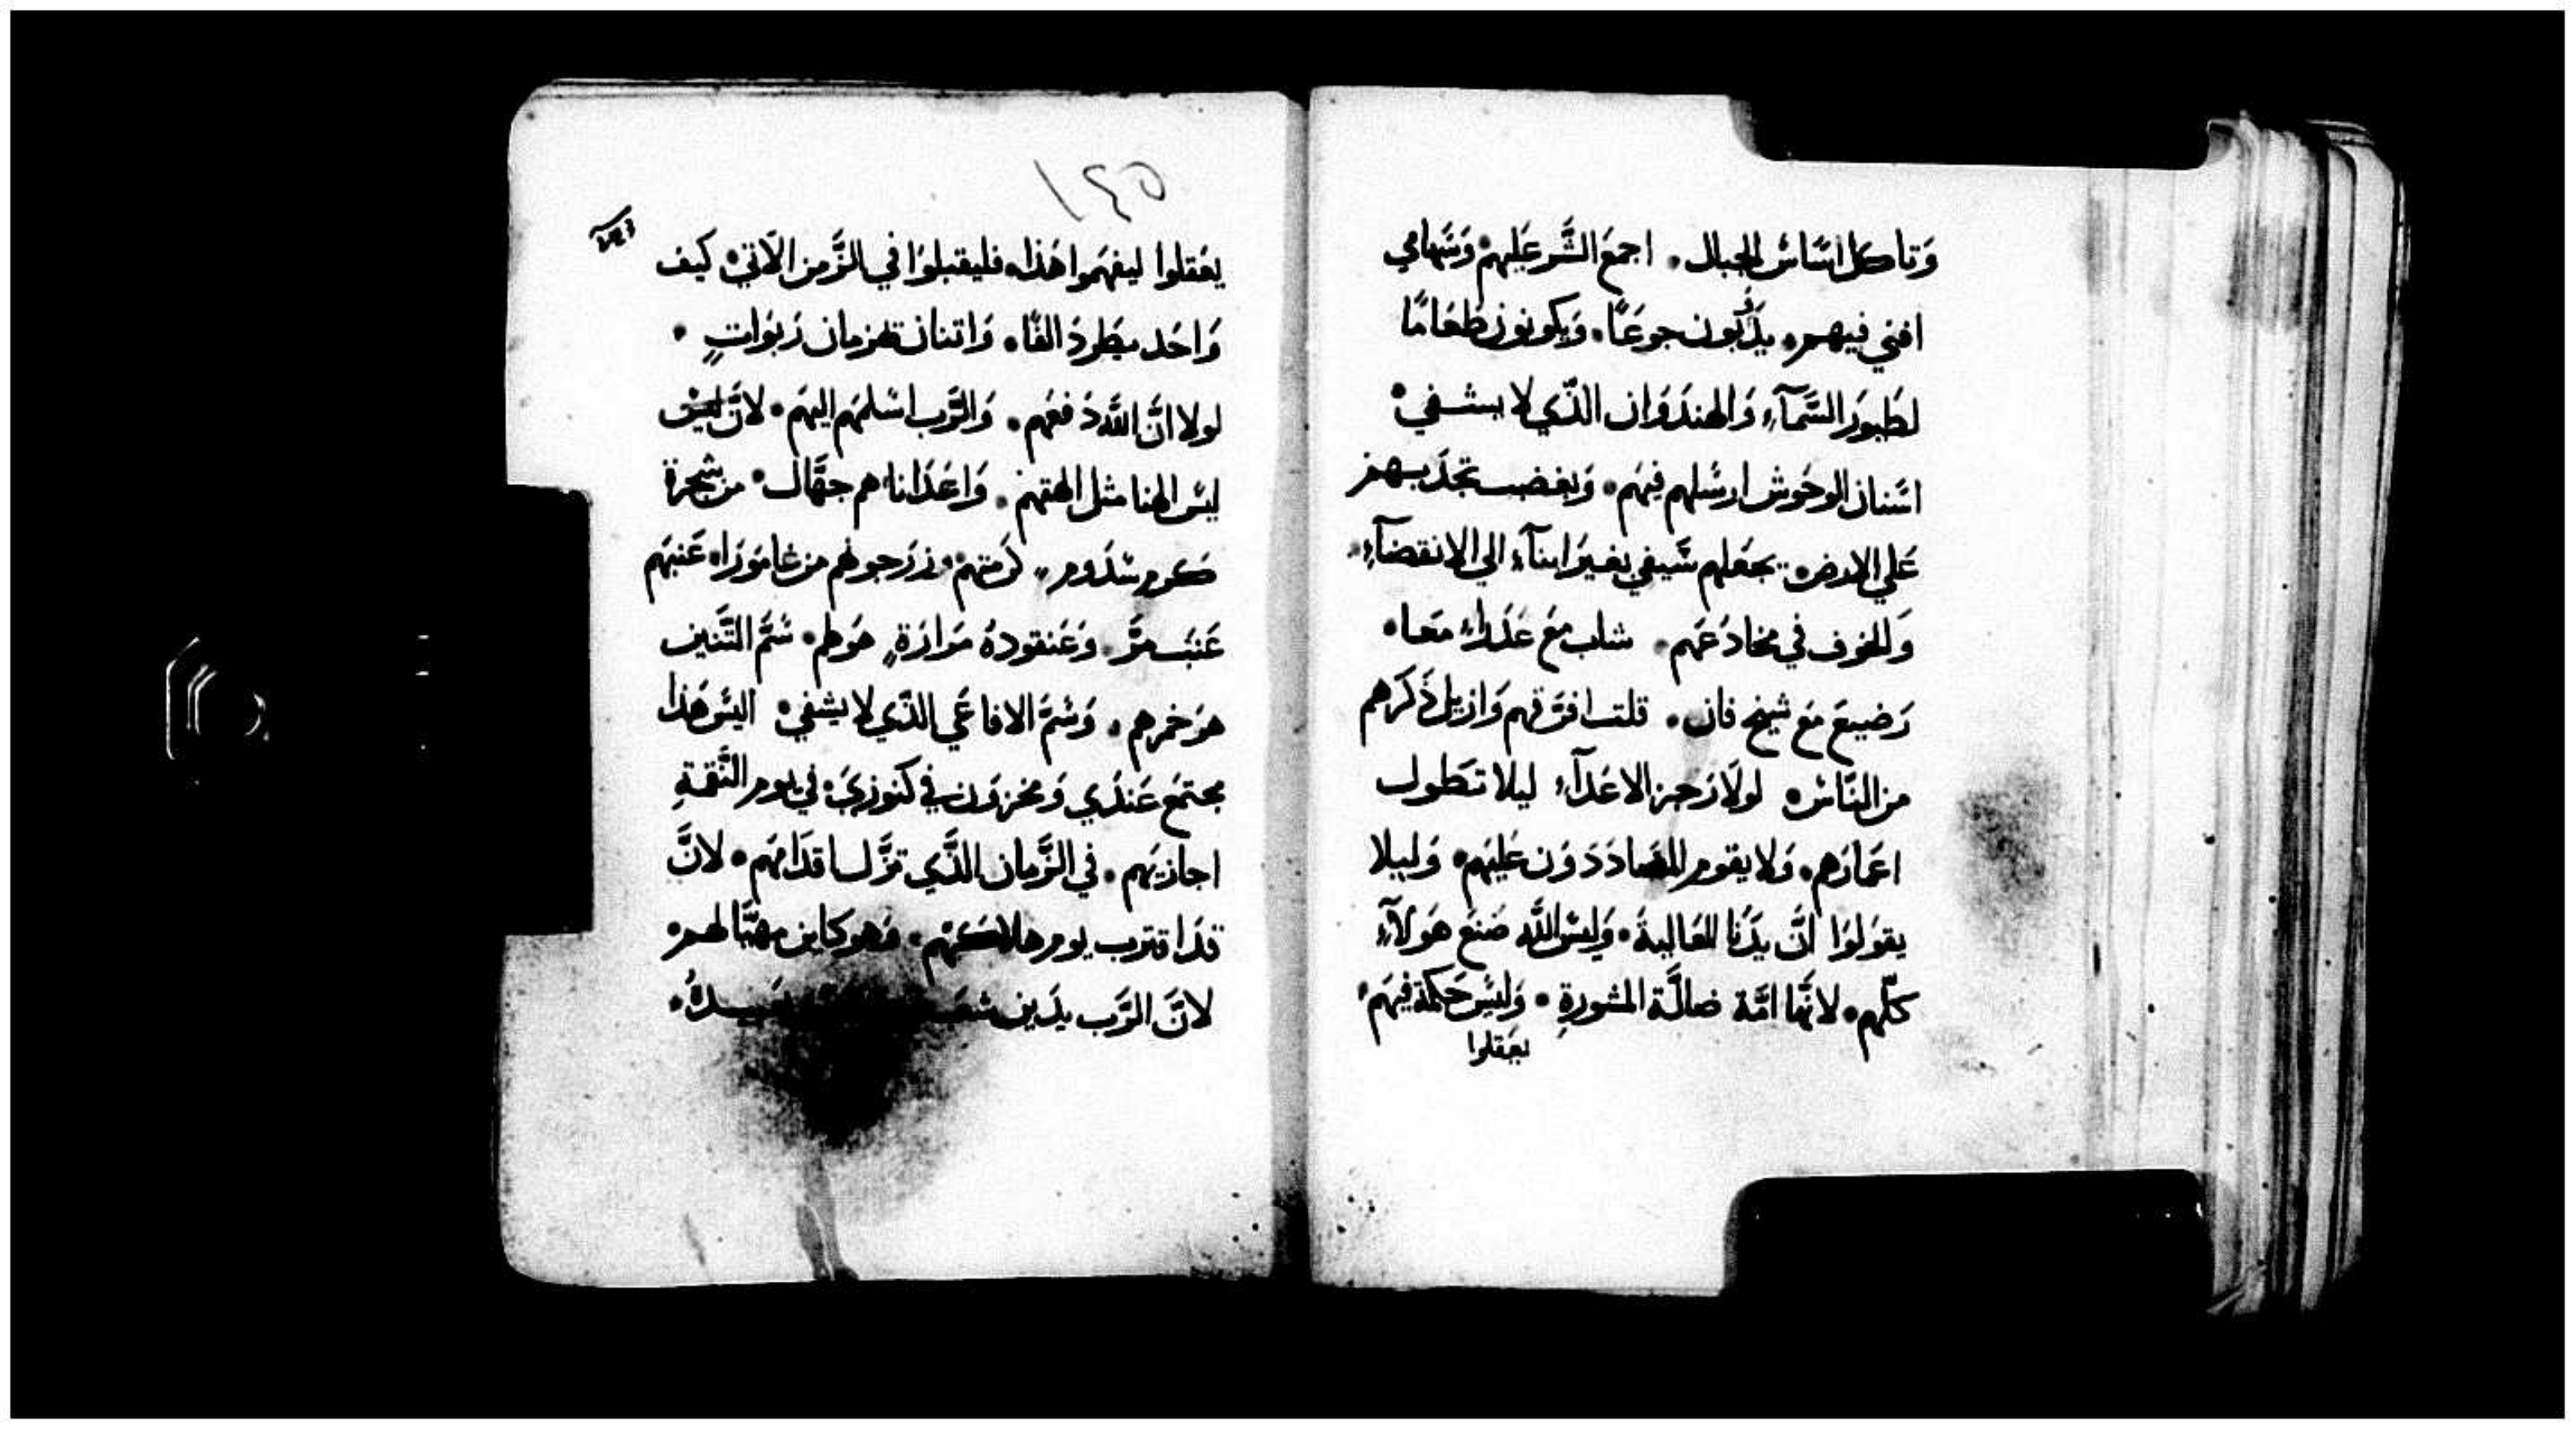 وَتاكل اسَاسْ الجبال. اجمعَ الشَّر عَليهمْ وَسَهامي
افني فيهم. يذَوبون جوعًا. وَيكونون طعَامًا
لطَيور السَّمآءِ وَالهندَوَان الذّي لا يشفيْ
اسَنان الوحَوش ارسَلهم فيهَم. وَبغضب تجذَبهم
عَلي الارض. يجعَلهم سَيفي بغيرَ ابنآء الي الانقضآءِ.
وَالخوف في مخادعَهم. شاب معَ عَذراءِ معَا.
رَضيعَ معَ شيخ فان. قلت افرَقهم وَازيل ذَكرهم
من النَّاسْ. لولاَ رَجز الاعَدآءِ ليلا تتَطول
اعَمارَهم. وَلا يقوم المضادَدوَن عَليهَم. وَليلا
يقوَلوَا انَّ يدَنا العَاليةَ. وَليسْ اللَّه صَنعَ هَولآءِ
كلّهم. لانَّها امَّة ضالَّة المشورةِ. وَليسَ حَكمة فيهَم.
يعَقلوا
١٤٥
يعَقلوا ليفهمَوا هَذا. فليقبلوَا في الزَّمن الآتيْ كيف
وَاحَد يطردَ الفًا. وَاتنان تهزمان رَبوَاتٍ.
لولا انَّ اللَّه دَفعَهم. وَالرَّب اسْلمهَم اليهَم. لانَّ ليسْ
ليسَ الهنا مثل الهتهم. وَاعَدَانا هم جهَّالْ. من شجرة
كروم سَدَوم. كرَمتهمْ وزرَجونهم من غامَورَا. عَنبهَم
عَنبَ مرَّ. وَعَنقودهُ مَرارَةٍ هوَلهم. سَمَّ التَّنين
هوَ خمرهم. وَسْمَّ الافاعَي الذّي لا يشفيْ اليسَ هَذا
مجتمعَ عَندَي وَمخزوَن في كنوزيَ. في يوم النَّقمةِ
اجازيَهم. في الزَّمان الذَّي تزَّل اقدَامهَم. لانَّ
قدَ اقترب يوم هلاكَهمْ. وَهو كاين مهيَّا لهم.
لانَّ الرَّب يدَين شعَب